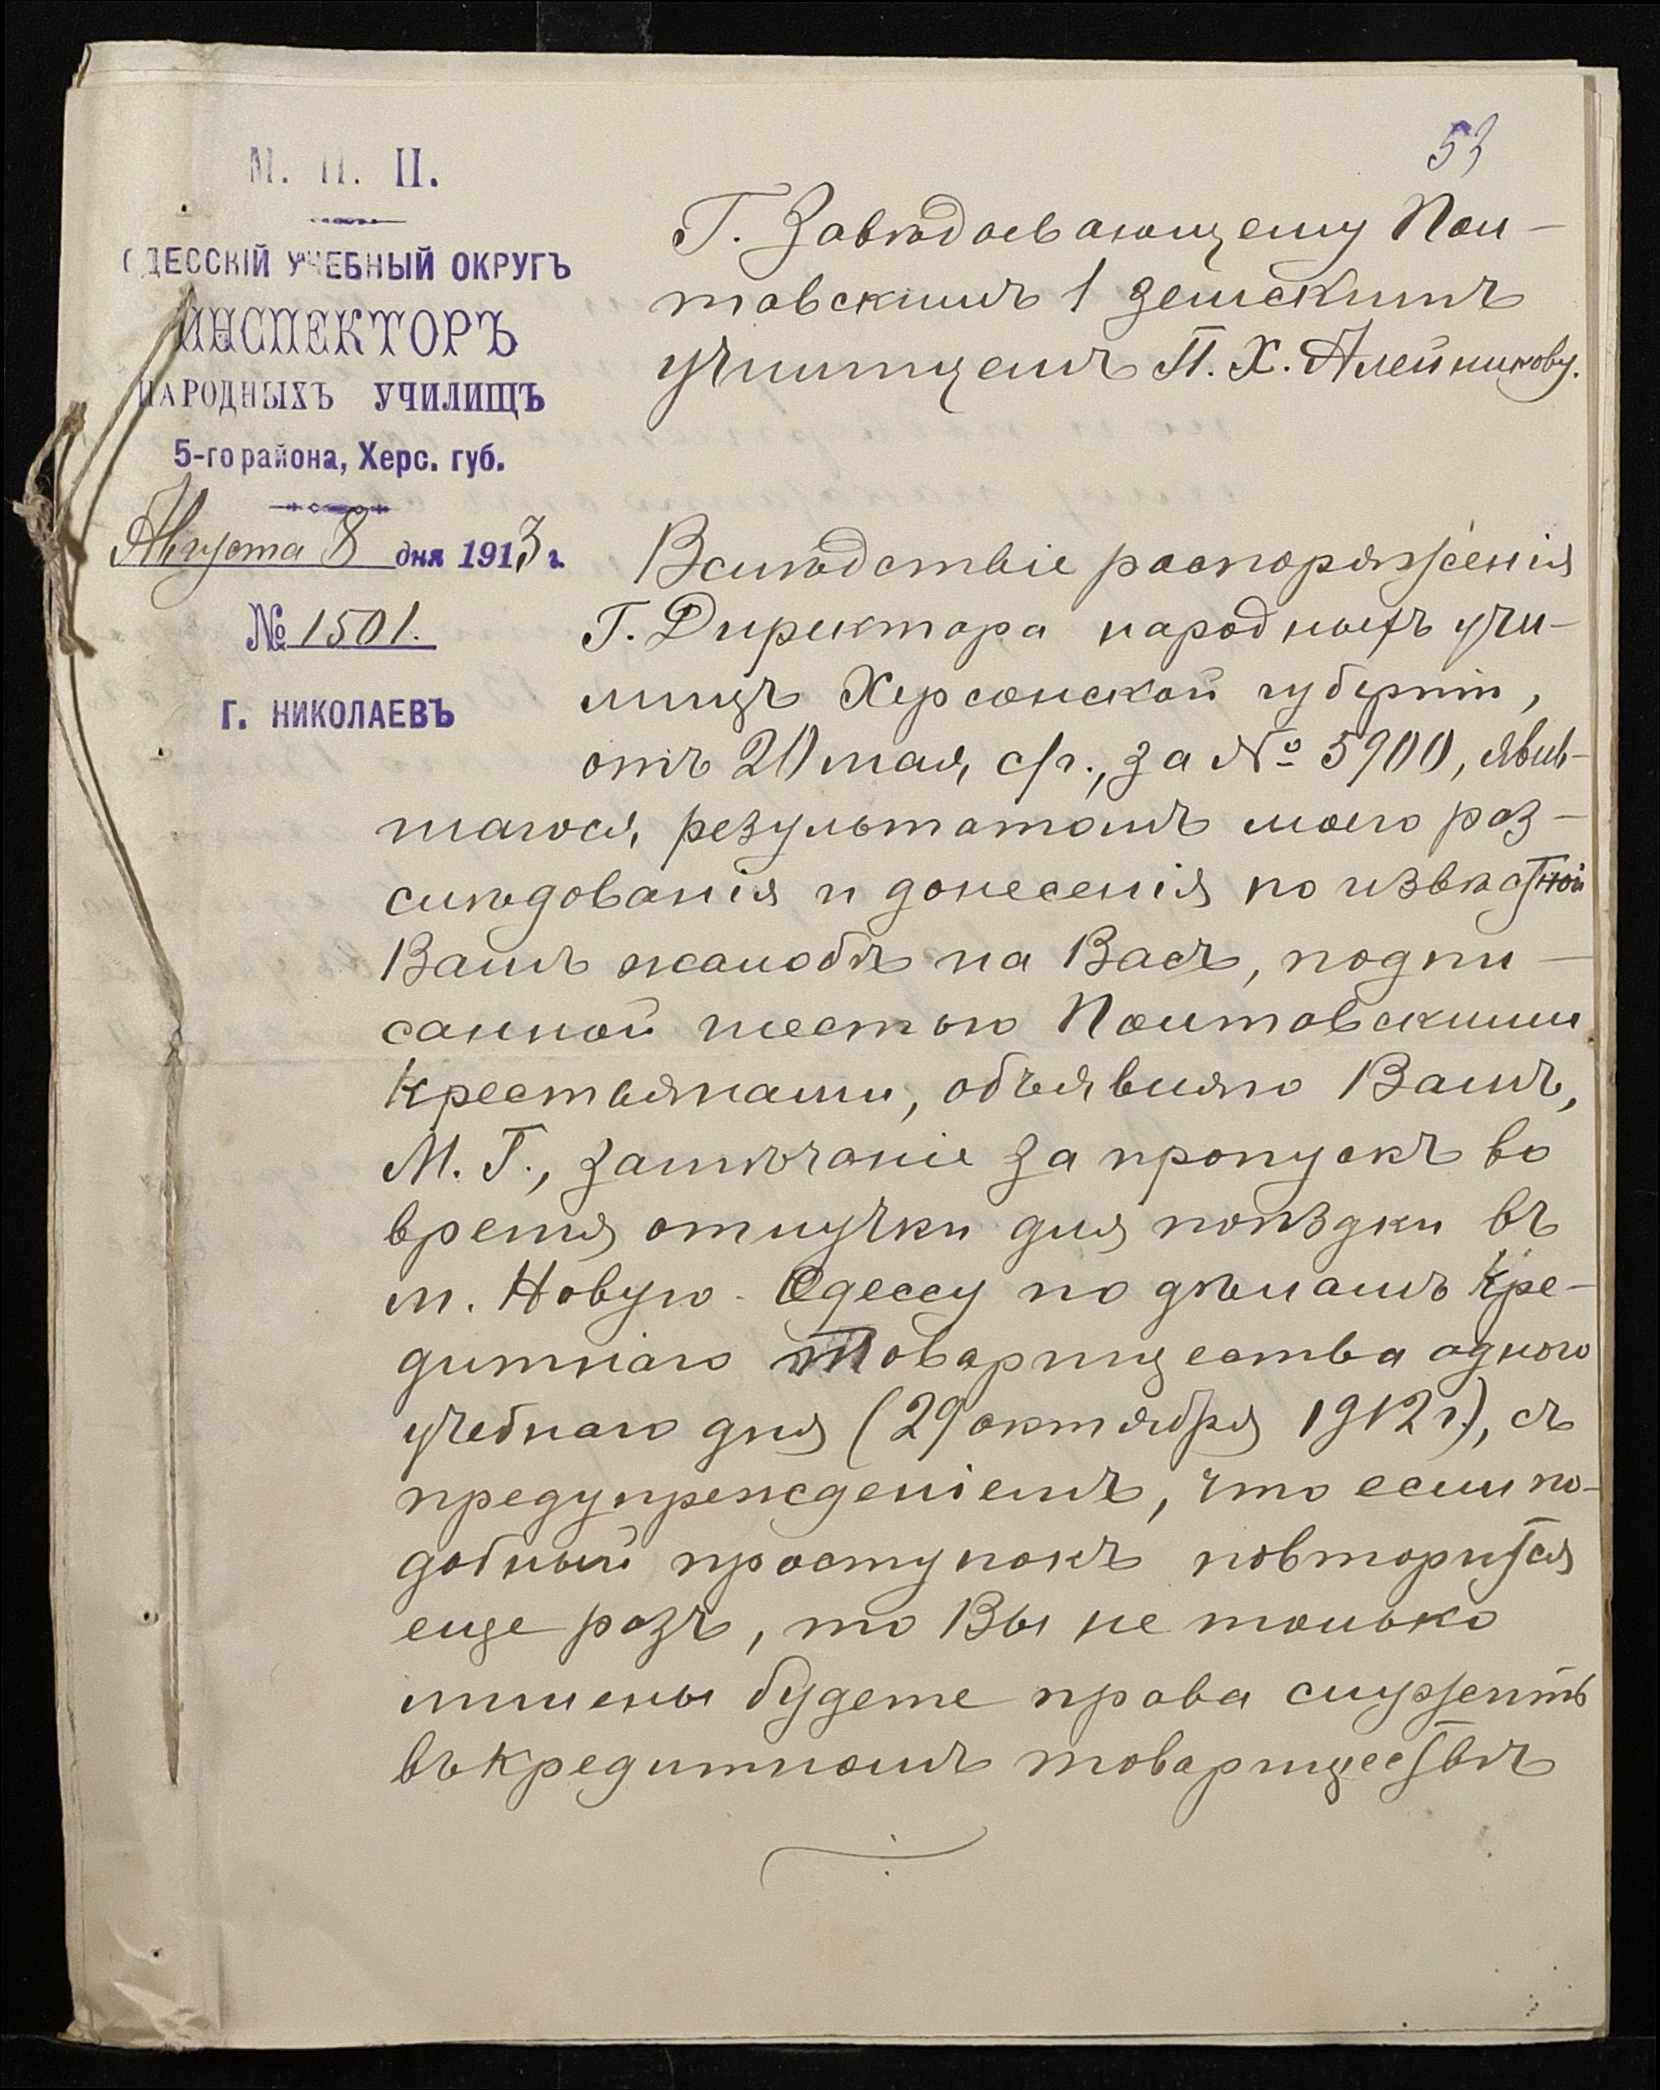 53
М. Н. П.
ОДЕССКІЙ УЧЕБНЫЙ ОКРУГЪ
ИНСПЕКТОРЪ
НАРОДНЫХЪ УЧИЛИЩЪ
5-го района, Херс. губ.
Августа 8 дня 1913 г.
№ 1501.
Г. НИКОЛАЕВЪ
Г. Завѣдывающему Пол-
тавскимъ 1 земскимъ
училищемъ П. Х. Алейникову.
Вслѣдствіе распоряженія
Г. Директора народныхъ учи-
лищъ Херсонской губерніи,
отъ 20 мая, с/г., за № 5900, явив-
шагося, результатомъ моего раз-
слѣдованія и донесенія по извѣстной
Вамъ жалобѣ на Васъ, подпи-
санной шестью Полтавскими
Крестьянами, объявляю Вамъ,
М. Г., замѣчаніе за пропускъ во
время отлучки для поѣздки въ
м. Новую Одессу по дѣламъ Кре-
дитнаго Товарищества одного
учебнаго дня (29 октября 1912 г.), съ
предупрежденіемъ, что если по-
добный проступокъ повторится
еще разъ, то Вы не только
лишены будете права служить
въ кредитномъ товариществѣ